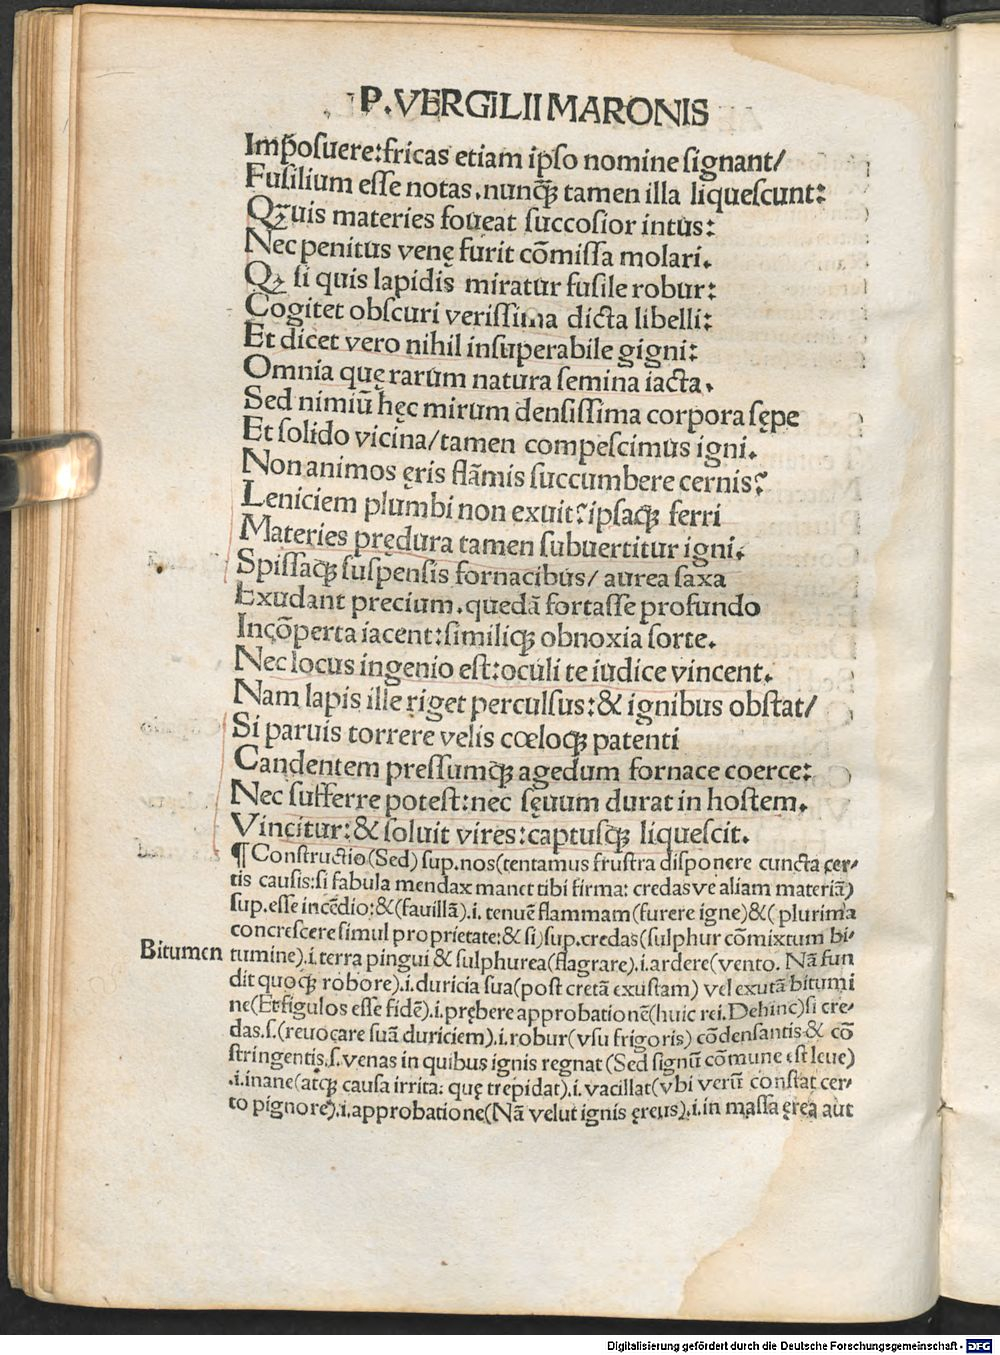 P. VERGILII MARONIS
Imp̃osuere: fricas etiam ipso nomine signant/
Fusilium esse notas. nunq̃ tamen illa liquescunt:
Qꝫuis materies foueat succosior intus:
Nec penitus venę furit cõmissa molari.
Qꝫ si quis lapidis miratur fusile robur:
Cogitet obscuri verissima dicta libelli:
Et dicet vero nihil insuperabile gigni:
Omnia quę rarum natura semina iacta.
Sed nimiũ hęc mirum densissima corpora sępe
Et solido vicina/ tamen compescimus igni.
Non animos ęris flãmis succumbere cernis?
Leniciem plumbi non exuit? ipsaqꝫ ferri
Materies prędura tamen subuertitur igni.
Spissaqꝫ suspensis fornacibus/ aurea saxa
Exudant precium. quedã fortasse profundo
Incõperta iacent: similiqꝫ obnoxia sorte.
Nec locus ingenio est: oculi te iudice vincent.
Nam lapis ille riget perculsus: & ignibus obstat/
Si paruis torrere velis cœloqꝫ patenti
Candentem pressumqꝫ agedum fornace coerce:
Nec sufferre potest: nec sęuum durat in hostem.
Vincitur: & soluit vires: captusqꝫ liquescit.
¶ Constructio (Sed) sup. nos (tentamus frustra disponere cuncta cer-
tis causis: si fabula mendax manet tibi firma: credas ve aliam materiã)
sup. esse incẽdio: & (fauillã) .i. tenuẽ flammam (furere igne) & (plurima
concrescere simul proprietate: & si) sup. credas (sulphur cõmixtum bi-
Bitumen
tumine) .i. terra pingui & sulphurea (flagrare) .i. ardere (vento. Nã fun
dit quoqꝫ robore) .i. duricia sua (post cretã exustam) vel exutã bitumi
ne (Et figulos esse fidẽ) .i. prębere approbationẽ (huic rei. Dehinc) si cre-
das .s. (reuocare suã duriciem) .i. robur (vsu frigoris) cõdensantis & cõ
stringentis .s. venas in quibus ignis regnat (Sed signũ cõmune est leue)
.i. inane (atqꝫ causa irrita: quę trepidat) .i. vacillat (vbi verũ constat cer-
to pignore) .i. approbatione (Nã velut ignis ęreus) .i. in massa ęrea aut
Digitalisierung gefördert durch die Deutsche Forschungsgemeinschaft - DFG